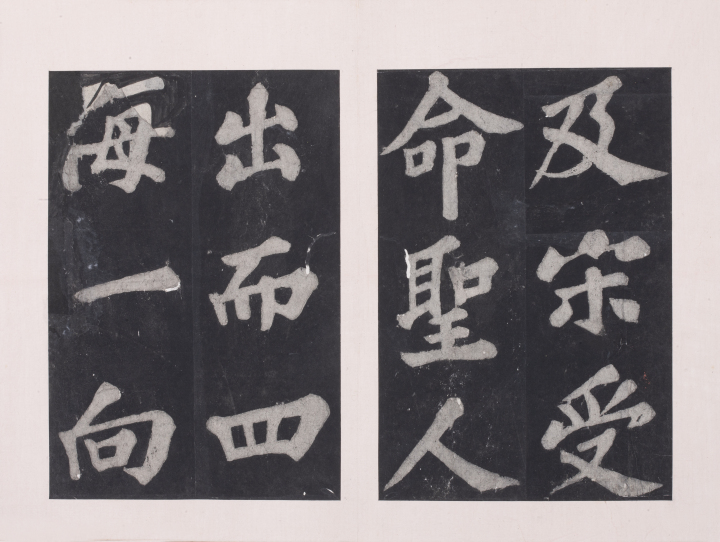 及宋受
命聖人
出而四
海一向